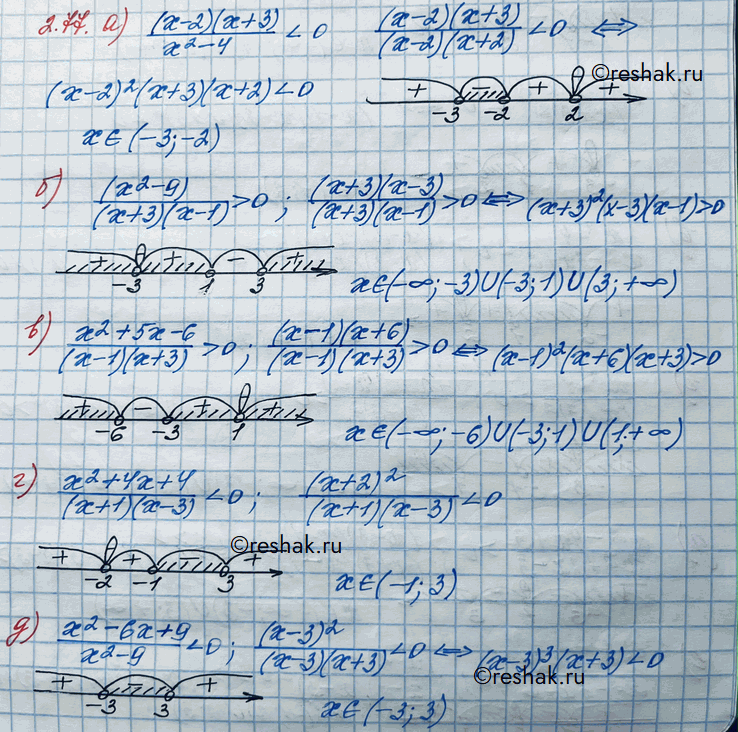 2.77. а) (x-2)(x+3)/(x²-4) < 0    (x-2)(x+3)/((x-2)(x+2)) < 0 ⇔
©reshak.ru
(x-2)²(x+3)(x+2) < 0    + - + +
-3 -2 2
x∈(-3;-2)
б) (x²-9)/((x+3)(x-1)) > 0 ; (x+3)(x-3)/((x+3)(x-1)) > 0 ⇔ (x+3)²(x-3)(x-1) > 0
+ + - +
-3 1 3    x∈(-∞;-3)∪(-3;1)∪(3;+∞)
в) (x²+5x-6)/((x-1)(x+3)) > 0 ; (x-1)(x+6)/((x-1)(x+3)) > 0 ⇔ (x-1)²(x+6)(x+3) > 0
+ - + +
-6 -3 1    x∈(-∞;-6)∪(-3;1)∪(1;+∞)
г) (x²+4x+4)/((x+1)(x-3)) < 0 ; (x+2)²/((x+1)(x-3)) < 0
©reshak.ru
+ + - +
-2 -1 3    x∈(-1;3)
д) (x²-6x+9)/(x²-9) < 0 ; (x-3)²/((x-3)(x+3)) < 0 ⇔ (x-3)³(x+3) < 0
©reshak.ru
+ - +
-3 3    x∈(-3;3)